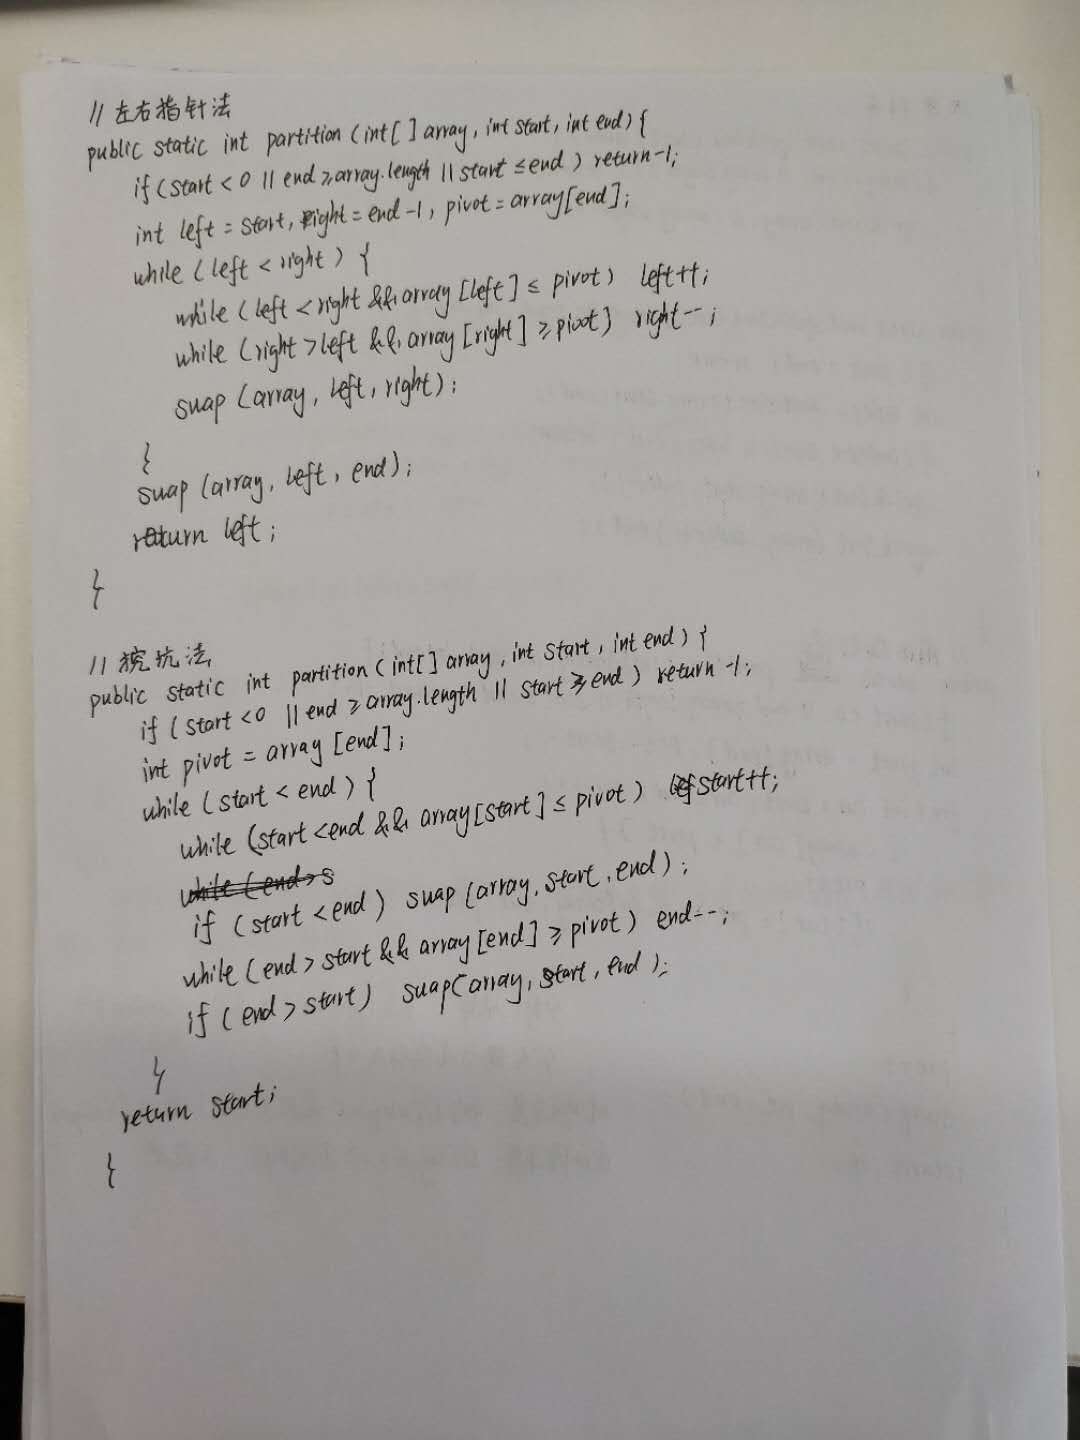 // 左右指针法
public static int partition (int[ ] array, int start, int end) {
if (start < 0 || end ≥ array.length || start ≤ end ) return -1;
int left = start, right = end -1, pivot = array[end];
while (left < right) {
while (left < right && array [left] ≤ pivot) left++;
while (right > left && array [right] ≥ pivot) right--;
swap (array, left, right);
}
swap (array, left, end);
return left;
}
// 挖坑法
public static int partition (int[] array, int start, int end) {
if (start < 0 || end ≥ array.length || start ≥ end) return -1;
int pivot = array [end];
while (start < end) {
while (start < end && array[start] ≤ pivot) start++;
while (end > s
if (start < end) swap (array, start, end);
while (end > start && array [end] ≥ pivot) end--;
if (end > start) swap (array, start, end);
}
return start;
}